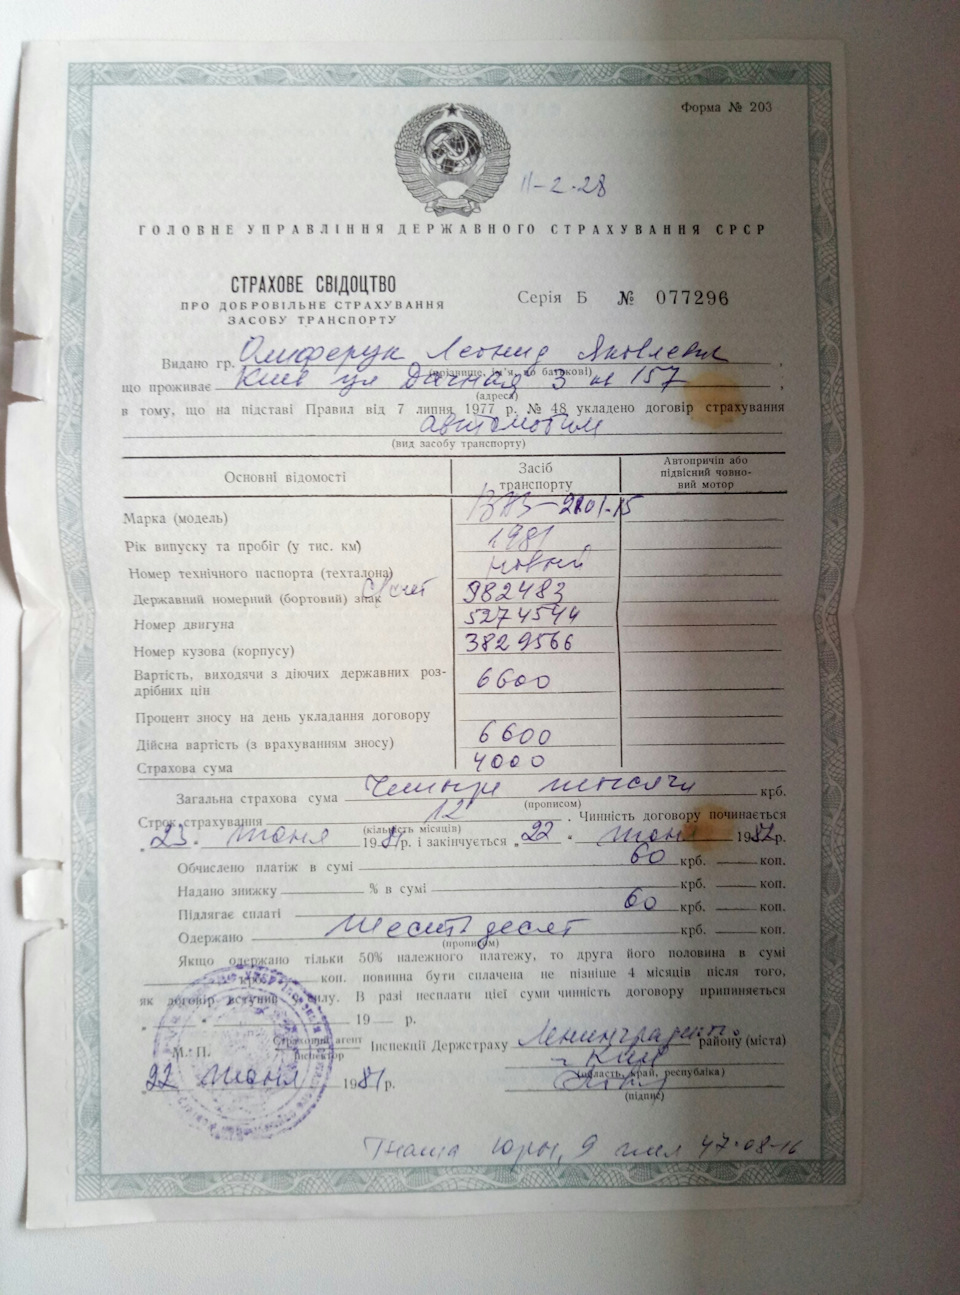 Форма № 203
11-2-28
ГОЛОВНЕ УПРАВЛІННЯ ДЕРЖАВНОГО СТРАХУВАННЯ СРСР
СТРАХОВЕ СВІДОЦТВО
ПРО ДОБРОВІЛЬНЕ СТРАХУВАННЯ
ЗАСОБУ ТРАНСПОРТУ
Серія Б № 077296
Видано гр. Олиферук Леонид Яковлевич
(прізвище, ім'я, по батькові)
що проживає Киев ул Дачная 3 кв 157,
(адреса)
в тому, що на підставі Правил від 7 липня 1977 р. № 48 укладено договір страхування
автомобиля
(вид засобу транспорту)
Основні відомості Засіб транспорту Автопричіп або підвісний човновий мотор
Марка (модель) ВАЗ-2101-15
Рік випуску та пробіг (у тис. км) 1981
Номер технічного паспорта (техталона) новый
Державний номерний (бортовий) знак 982483
Номер двигуна 5274544
Номер кузова (корпусу) 3829566
Вартість, виходячи з діючих державних роз-
дрібних цін 6600
Процент зносу на день укладання договору
Дійсна вартість (з врахуванням зносу) 6600
Страхова сума 4000
Загальна страхова сума Четыре тысячи крб.
(прописом)
Строк страхування 12. Чинність договору починається
(кількість місяців)
„23" июня 1981 р. і закінчується „22" июня 1982 р.
Обчислено платіж в сумі 60 крб. — коп.
Надано знижку — % в сумі — крб. — коп.
Підлягає сплаті 60 крб. — коп.
Одержано Шестьдесят крб. — коп.
(прописом)
Якщо одержано тільки 50% належного платежу, то друга його половина в сумі
коп. повинна бути сплачена не пізніше 4 місяців після того,
як договір вступив в силу. В разі несплати цієї суми чинність договору припиняється
19 — р.
М. П. Страховий агент
інспектор
Інспекції Держстраху Ленинградск. району (міста)
г Киев
(область, край, республіка)
(підпис)
22 июня 1981 р.
47-08-16